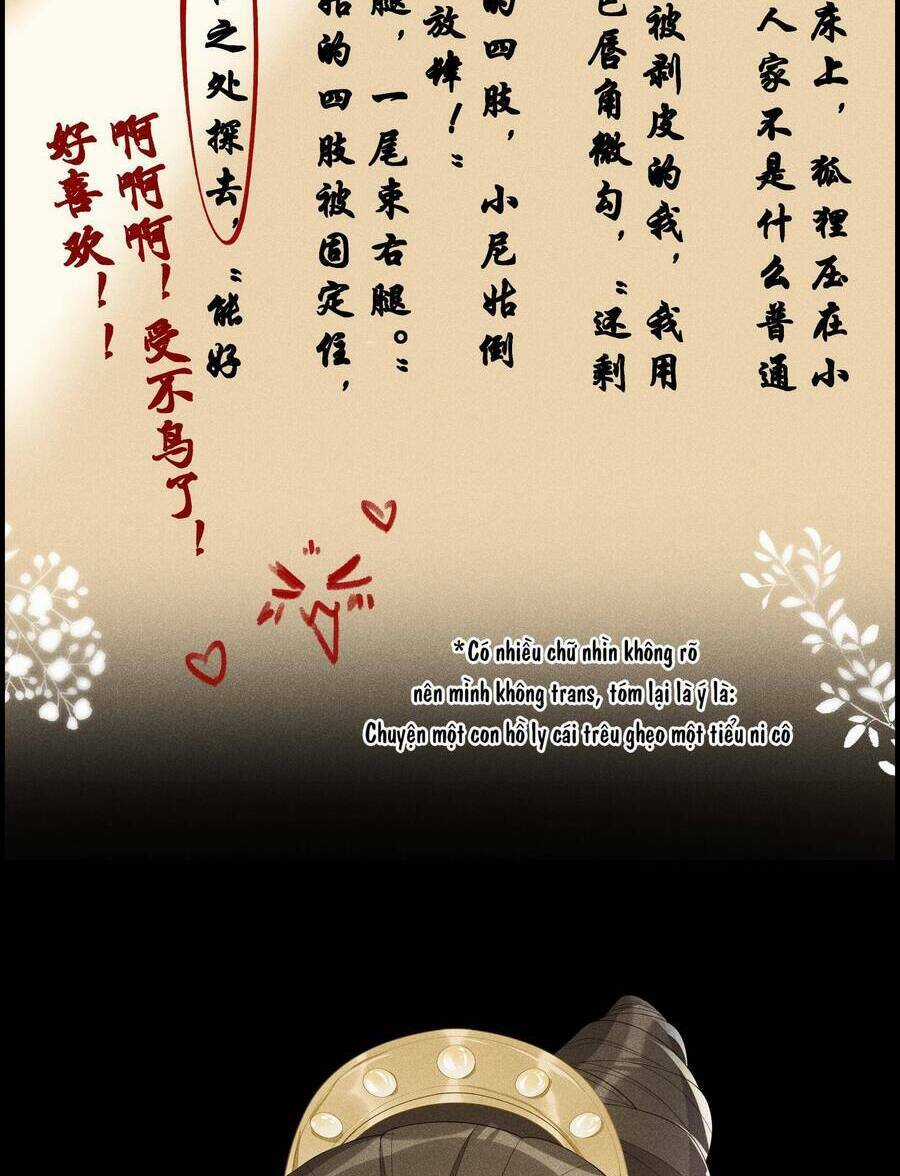 床上，狐狸压在小
人家不是什么普通
被剥皮的我，我用
唇角微勾，“还剩
的四肢，小尼姑倒
放肆！”
腿，一尾束右腿。”
的四肢被固定住，
之处探去，“能好
啊啊啊！受不鸟了！
好喜欢！！
*Có nhiều chữ nhìn không rõ
nên mình không trans, tóm lại là ý là:
Chuyện một con hồ ly cái trêu ghẹo một tiểu ni cô